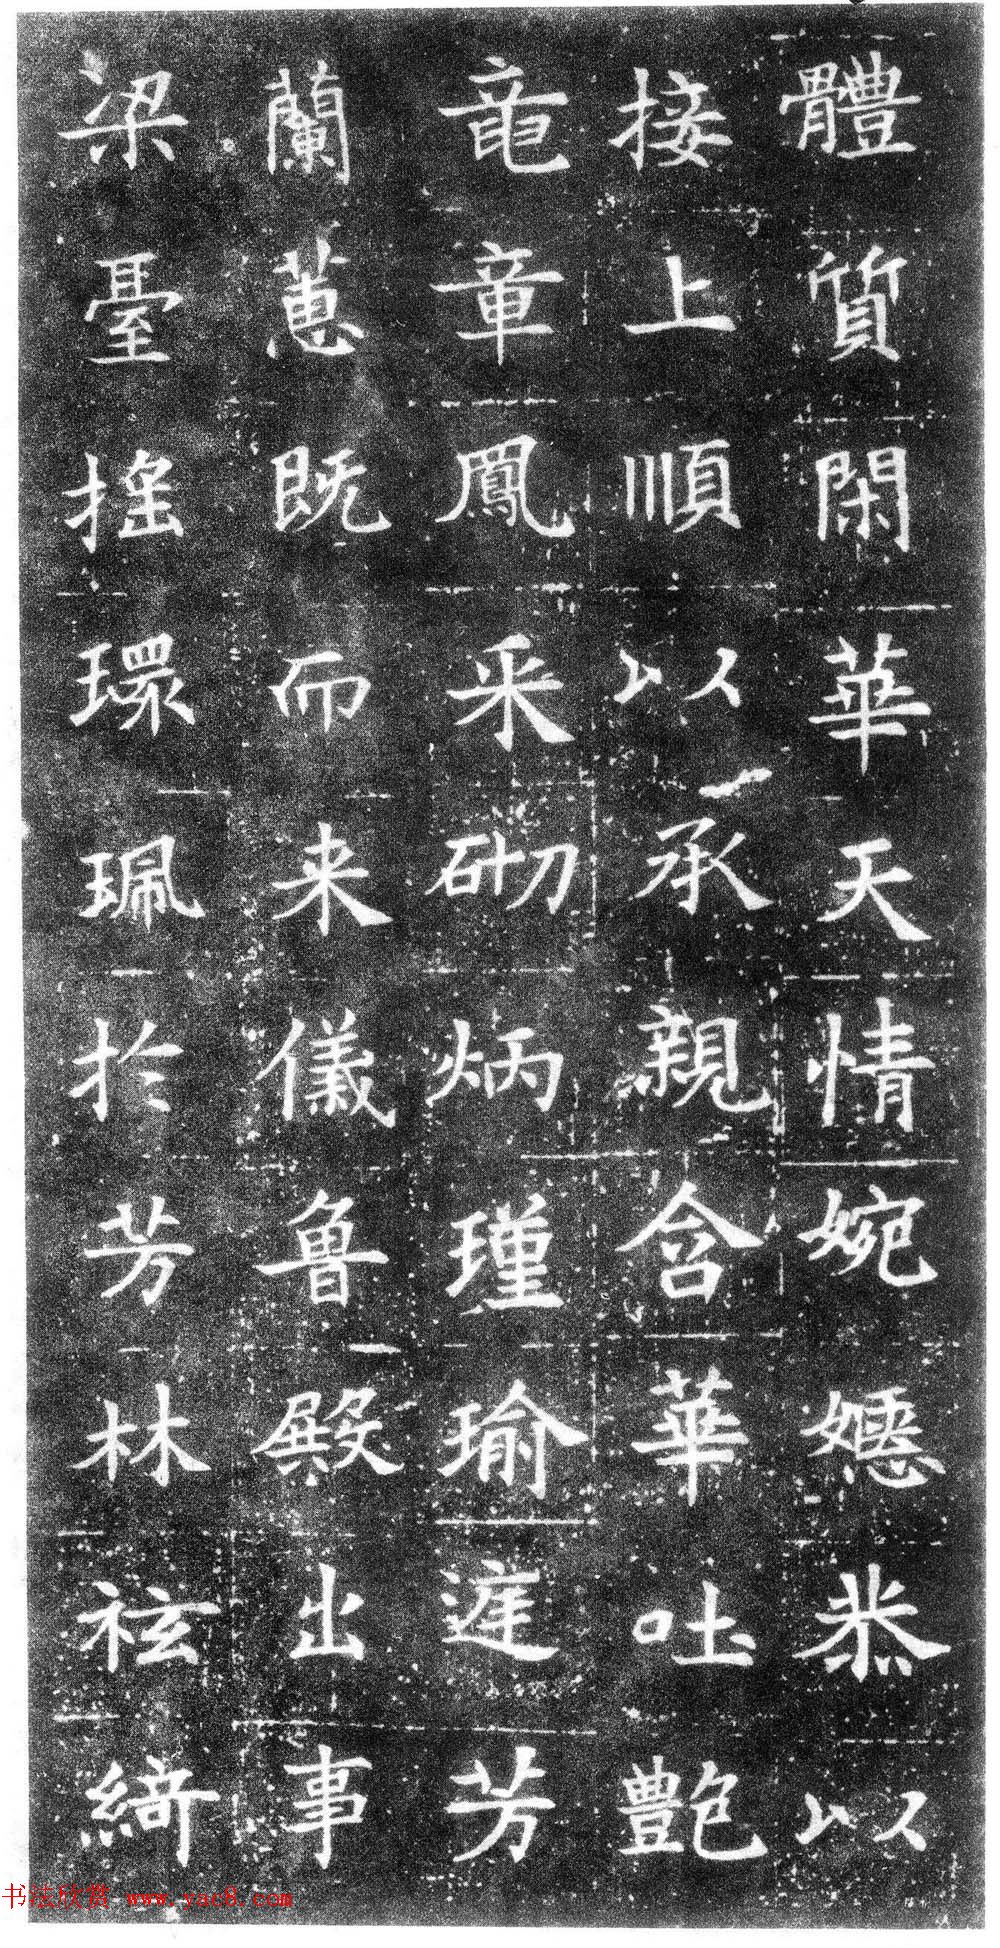 體質閑華天情婉嬺恭以
接上順以承親含華吐艷
竜章鳳采砌炳瑾瑜庭芳
蘭蕙既而来儀魯殿出事
梁臺搖環珮於芳林袨綺
书法欣赏 www.yac8.com